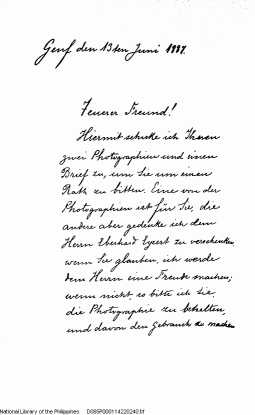 Genf den 13ten Juni 1887.
Teuerer Freund!
Hiermit schicke ich Ihnen
zwei Photographien und einen
Brief zu, um Sie um einen
Rath zu bitten. Eine von der
Photographien ist für Sie, die
andere aber gedenke ich dem
Herrn Eberhard zu verschenken
wenn Sie glauben, ich werde
dem Herrn eine Freude machen;
wenn nicht, so bitte ich Sie,
die Photographie zu behalten,
und davon den Gebrauch zu machen
National Library of the Philippines